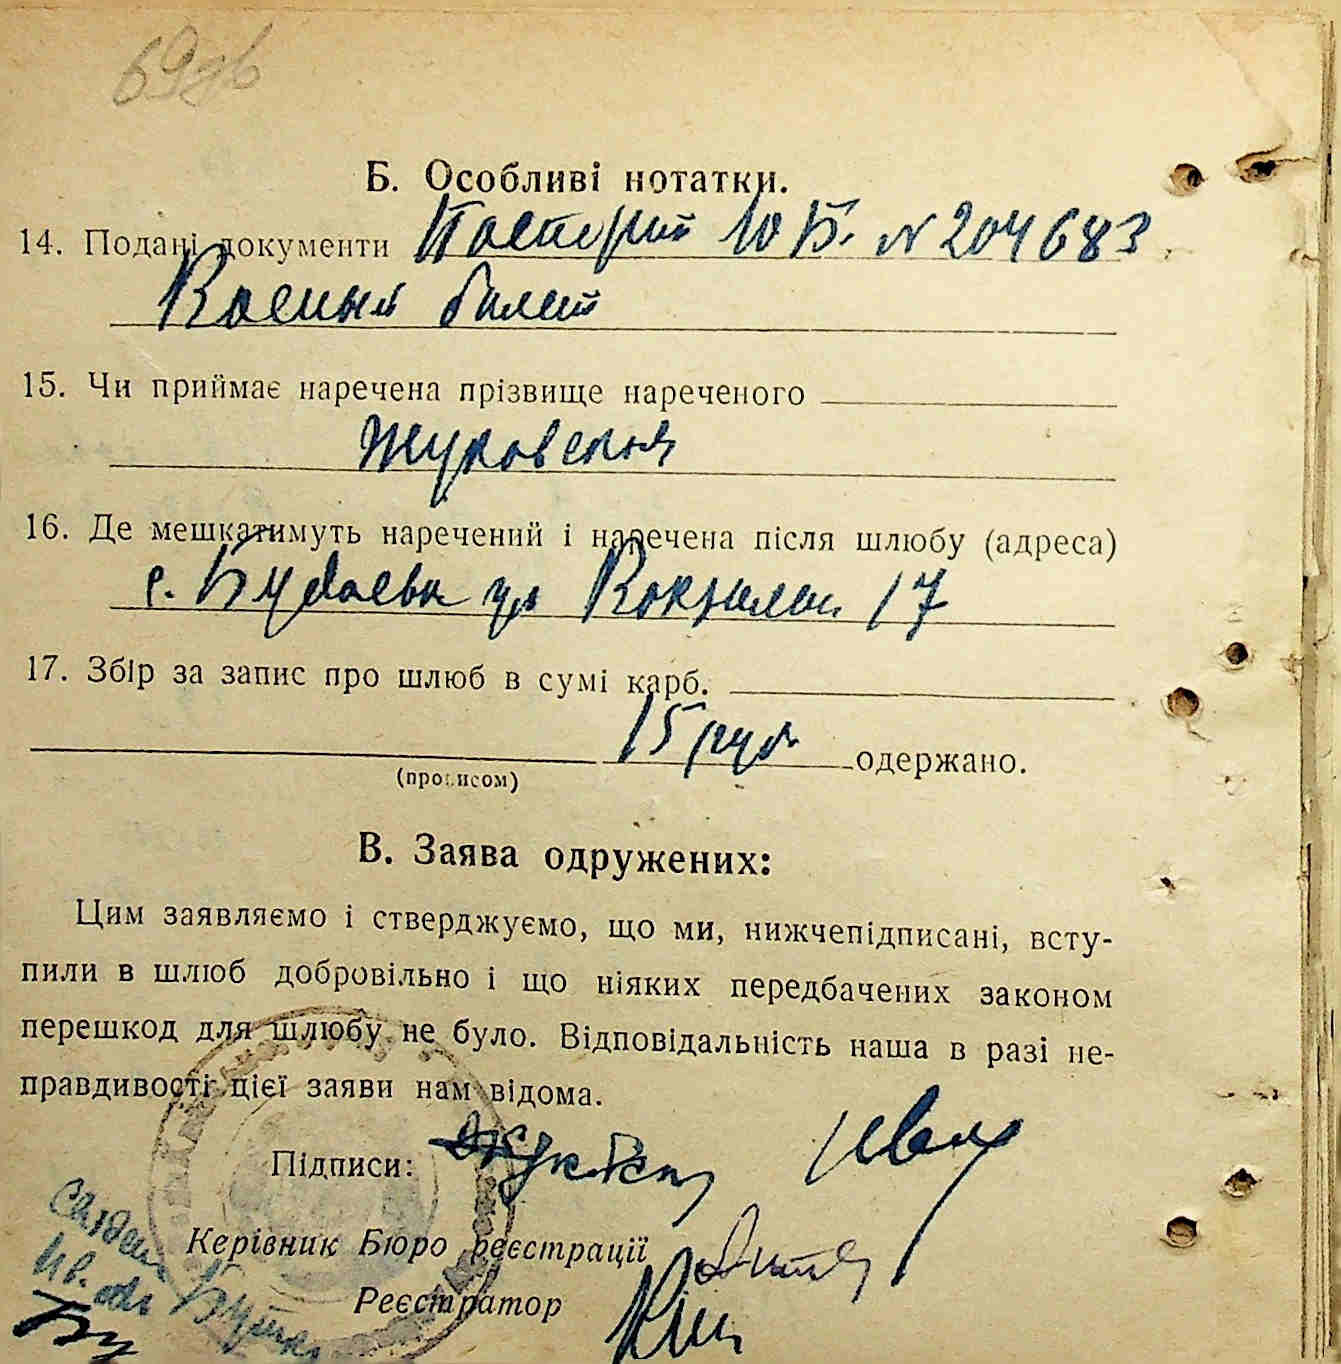 69зв
Б. Особливі нотатки.
14. Подані документи Паспорт Ю Б. № 204683
Военый билет
15. Чи приймає наречена прізвище нареченого
Жуковская
16. Де мешкатимуть наречений і наречена після шлюбу (адреса)
с. Будаевка ул 17
17. Збір за запис про шлюб в сумі карб.
15 руб одержано.
(прописом)
В. Заява одружених:
Цим заявляємо і стверджуємо, що ми, нижчепідписані, всту-
пили в шлюб добровільно і що ніяких передбачених законом
перешкод для шлюбу не було. Відповідальність наша в разі не-
правдивості цієї заяви нам відома.
Підписи:
Керівник Бюро реєстрації
Реєстратор